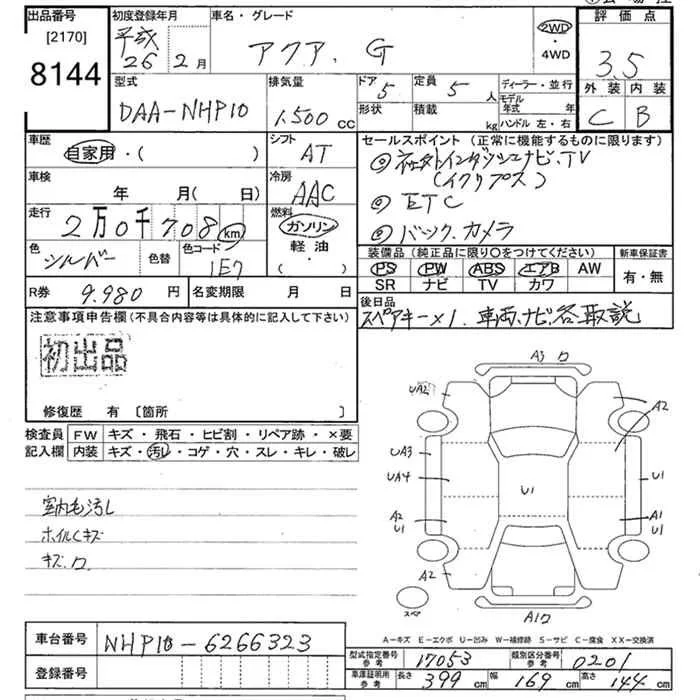 出品番号 初度登録年月 車名・グレード 評価点
[2170] 平成 2WD
8144 26年 2月 アクア. G ・4WD 3.5
型式 排気量 ドア 定員 ディーラー・並行 外装 内装
DAA-NHP10 1.500cc 5 5人 モデル年式 年 C B
形状 積載 kg ハンドル 左・右
車歴 シフト セールスポイント (正常に機能するものに限ります)
自家用・( ) AT ナビ、TV
車検 冷房 (イクリプス)
年 月(日) AAC ETC
走行 燃料 バック.カメラ
2万0千708km ガソリン
色 色替 色コード 軽油 装備品 (純正品に限り○をつけてください) 新車保証書
シルバー 1E7 ・( ) PS PW ABS エアB AW 有・無
SR ナビ TV カワ
R券 9.980円 名変期限 月 日 後日品
注意事項申告欄(不具合内容等は具体的に記入して下さい) スペアキー×1. 車両、ナビ各取説
初出品
修復歴 有 [箇所 ]
検査員 FW キズ・飛石・ヒビ割・リペア跡・×要
記入欄 内装 キズ・汚れ・コゲ・穴・スレ・キレ・破レ
室内毛汚レ
ホイルCキズ
キズ.ワ
A3 ワ
UA2 A2
UA3
UA4 U1 U1
A2 A1
U1 U1
A2
スペア A1ワ
A-キズ E-エクボ U-凹み W-補修跡 S-サビ C-腐食 XX-交換済
車台番号 NHP10-6266323
型式指定番号 参考 17053 類別区分番号 参考 0201
登録番号 車庫証明用 参考 長さ 399cm 幅 169cm 高さ 144cm